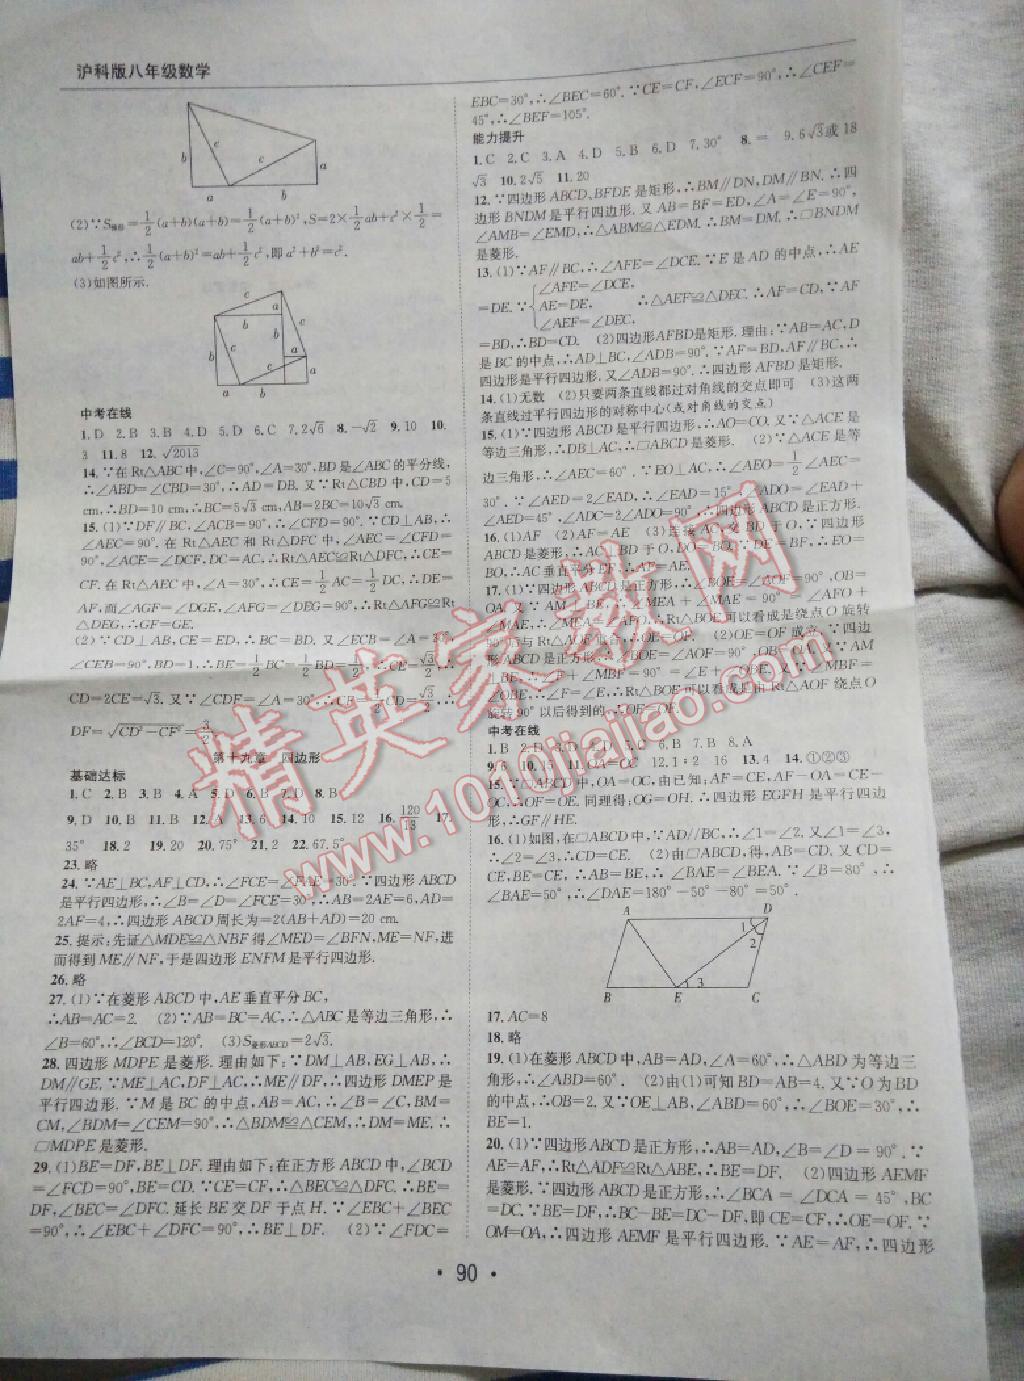 沪科版八年级数学
(2)∵S梯形=1/2(a+b)(a+b)=1/2(a+b)²,S=2×1/2ab+c²×1/2=
ab+1/2c²,∴1/2(a+b)²=ab+1/2c²,即a²+b²=c².
(3)如图所示.
中考在线
1.D 2.B 3.B 4.D 5.D 6.C 7.2√6 8.−√2 9.10 10.
3 11.8 12.√2013
14.∵在Rt△ABC中,∠C=90°,∠A=30°,BD是∠ABC的平分线,
∴∠ABD=∠CBD=30°,∴AD=DB.又∵Rt△CBD中,CD=5
cm,∴BD=10 cm,∴BC=5√3 cm,AB=2BC=10√3 cm.
15.(1)∵DF∥BC,∠ACB=90°,∴∠CFD=90°.∵CD⊥AB,∴
∠AEC=90°.在Rt△AEC和Rt△DFC中,∠AEC=∠CFD=
90°,∠ACE=∠DCF,DC=AC,∴Rt△AEC≌Rt△DFC,∴CE=
CF.在Rt△AEC中,∠A=30°,∴CE=1/2AC=1/2DC,∴DE=
AF,而∠AGF=∠DGE,∠AFG=∠DEG=90°,∴Rt△AFG≌Rt
△DEG,∴GF=GE.
(2)∵CD⊥AB,CE=ED,∴BC=BD.又∠ECB=∠A=30°,
∠CEB=90°,BD=1,∴BE=1/2BC=1/2BD=1/2,∴CE=√3/2,∴
CD=2CE=√3.又∵∠CDF=∠A=30°,∴CF=1/2CD=√3/2,∴
DF=√(CD²−CF²)=3/2.
第十九章 四边形
基础达标
1.C 2.B 3.B 4.A 5.D 6.D 7.D 8.B
9.D 10.B 11.B 12.A 13.6 14.10 15.12 16.120/13 17.
35° 18.2 19.20 20.75° 21.2 22.67.5°
23.略
24.∵AE⊥BC,AF⊥CD,∴∠FCE=∠FAE=30°.∵四边形ABCD
是平行四边形,∴∠B=∠D=∠FCE=30°,∴AB=2AE=6,AD=
2AF=4,∴四边形ABCD周长为=2(AB+AD)=20 cm.
25.提示:先证△MDE≌△NBF得∠MED=∠BFN,ME=NF,进
而得到ME∥NF,于是四边形ENFM是平行四边形.
26.略
27.(1)∵在菱形ABCD中,AE垂直平分BC,
∴AB=AC=2. (2)∵AB=BC=AC,∴△ABC是等边三角形,∴
∠B=60°,∴∠BCD=120°. (3)S菱形ABCD=2√3.
28.四边形MDPE是菱形.理由如下:∵DM⊥AB,EG⊥AB,∴
DM∥GE.∵ME⊥AC,DF⊥AC,∴ME∥DF,∴四边形DMEP是
平行四边形.∵M是BC的中点,AB=AC,∴∠B=∠C,BM=
CM,∠BDM=∠CEM=90°,∴△BDM≌△CEM,∴DM=ME.∴
▱MDPE是菱形.
29.(1)BE=DF,BE⊥DF.理由如下:在正方形ABCD中,∠BCD
=∠FCD=90°,BE=CD.∵CE=CF,∴△BEC≌△DFC.∴BE=
DF,∠BEC=∠DFC.延长BE交DF于点H.∵∠EBC+∠BEC
=90°,∴∠EBC+∠DFC=90°,∴BE⊥DF. (2)∵∠FDC=
EBC=30°,∴∠BEC=60°.∵CE=CF,∠ECF=90°,∴∠CEF=
45°,∴∠BEF=105°.
能力提升
1.C 2.C 3.A 4.D 5.B 6.D 7.30° 8.= 9.6√3或18
√3 10.2√5 11.20
12.∵四边形ABCD、BFDE是矩形,∴BM∥DN,DM∥BN.∴四
边形BNDM是平行四边形.又AB=BF=ED,∠A=∠E=90°,
∠AMB=∠EMD,∴△ABM≌△EDM.∴BM=DM.∴▱BNDM
是菱形.
13.(1)∵AF∥BC,∴∠AFE=∠DCE.∵E是AD的中点,∴AE
=DE.∵{∠AFE=∠DCE, AE=DE, ∠AEF=∠DEC, ∴△AEF≌△DEC.∴AF=CD,∵AF
=BD,∴BD=CD. (2)四边形AFBD是矩形.理由:∵AB=AC,D
是BC的中点,∴AD⊥BC,∠ADB=90°.∵AF=BD,AF∥BC,∴
四边形是平行四边形.又∠ADB=90°.∴四边形AFBD是矩形.
14.(1)无数 (2)只要两条直线都过对角线的交点即可 (3)这两
条直线过平行四边形的对称中心(或对角线的交点)
15.(1)∵四边形ABCD是平行四边形,∴AO=CO.又∵△ACE是
等边三角形,∴DB⊥AC,∴▱ABCD是菱形. (2)∵△ACE是等
边三角形,∴∠AEC=60°.∵EO⊥AC,∴∠AEO=1/2∠AEC=
30°.∵∠AED=2∠EAD,∴∠EAD=15°,∴∠ADO=∠EAD+
∠AED=45°,∠ADC=2∠ADO=90°,∴四边形ABCD是正方形.
16.(1)AF (2)AF=AE (3)连接AC交BD于O,∵四边形
ABCD是菱形,∴AC⊥BD于O,DO=BO.∵DE=BF,∴EO=
BO,∴AC垂直平分EF,∴AF=AE.
17.(1)∵四边形ABCD是正方形,∴∠BOE=∠AOF=90°,OB=
OA.又∵AM⊥BE,∴∠MEA+∠MAE=90°=∠AFO+
∠MAE,∴∠MEA=∠AFO,∴Rt△BOE可以看成是绕点O旋转
90°后与Rt△AOF重合,∴OE=OF. (2)OE=OF成立.∵四边
形ABCD是正方形,∴∠BOE=∠AOF=90°,OB=OA.又∵AM
⊥BE,∴∠F+∠MBF=90°=∠E+∠OBE.又∵∠MBF=
∠OBE,∴∠F=∠E,∴Rt△BOE可以看成是由Rt△AOF绕点O
旋转90°以后得到的,∴OE=OF.
中考在线
1.B 2.D 3.D 4.D 5.C 6.B 7.B 8.A
10.15 11.OA=OC 12.1:2 16 13.4 14.①②③
15.∵▱ABCD中,OA=OC,由已知:AF=CE,AF−OA=CE−
OC,∴OF=OE.同理得:OG=OH.∴四边形EGFH是平行四边
形,∴GF∥HE.
16.(1)如图,在▱ABCD中,∵AD∥BC,∴∠1=∠2.又∠1=∠3,
∴∠2=∠3,∴CD=CE. (2)由▱ABCD,得,AB=CD.又CD=
CE,BE=CE,∴AB=BE,∴∠BAE=∠BEA.∵∠B=80°,∴
∠BAE=50°,∴∠DAE=180°−50°−80°=50°.
A D 1 2 3 B E C
17.AC=8
18.略
19.(1)在菱形ABCD中,AB=AD,∠A=60°,∴△ABD为等边三
角形,∴∠ABD=60°. (2)由(1)可知BD=AB=4.又∵O为BD
的中点,∴OB=2.又∵OE⊥AB,∠ABD=60°,∴∠BOE=30°,∴
BE=1.
20.(1)∵四边形ABCD是正方形,∴AB=AD,∠B=∠D=90°.∵
AE=AF,∴Rt△ADF≌Rt△ABE,∴BE=DF. (2)四边形AEMF
是菱形.∵四边形ABCD是正方形,∴∠BCA=∠DCA=45°,BC
=DC.∵BE=DF,∴BC−BE=DC−DF,即CE=CF,∴OE=OF.∵
OM=OA,∴四边形AEMF是平行四边形.∵AE=AF,∴四边形
·90·
精英家教网
www.1010jiajiao.com